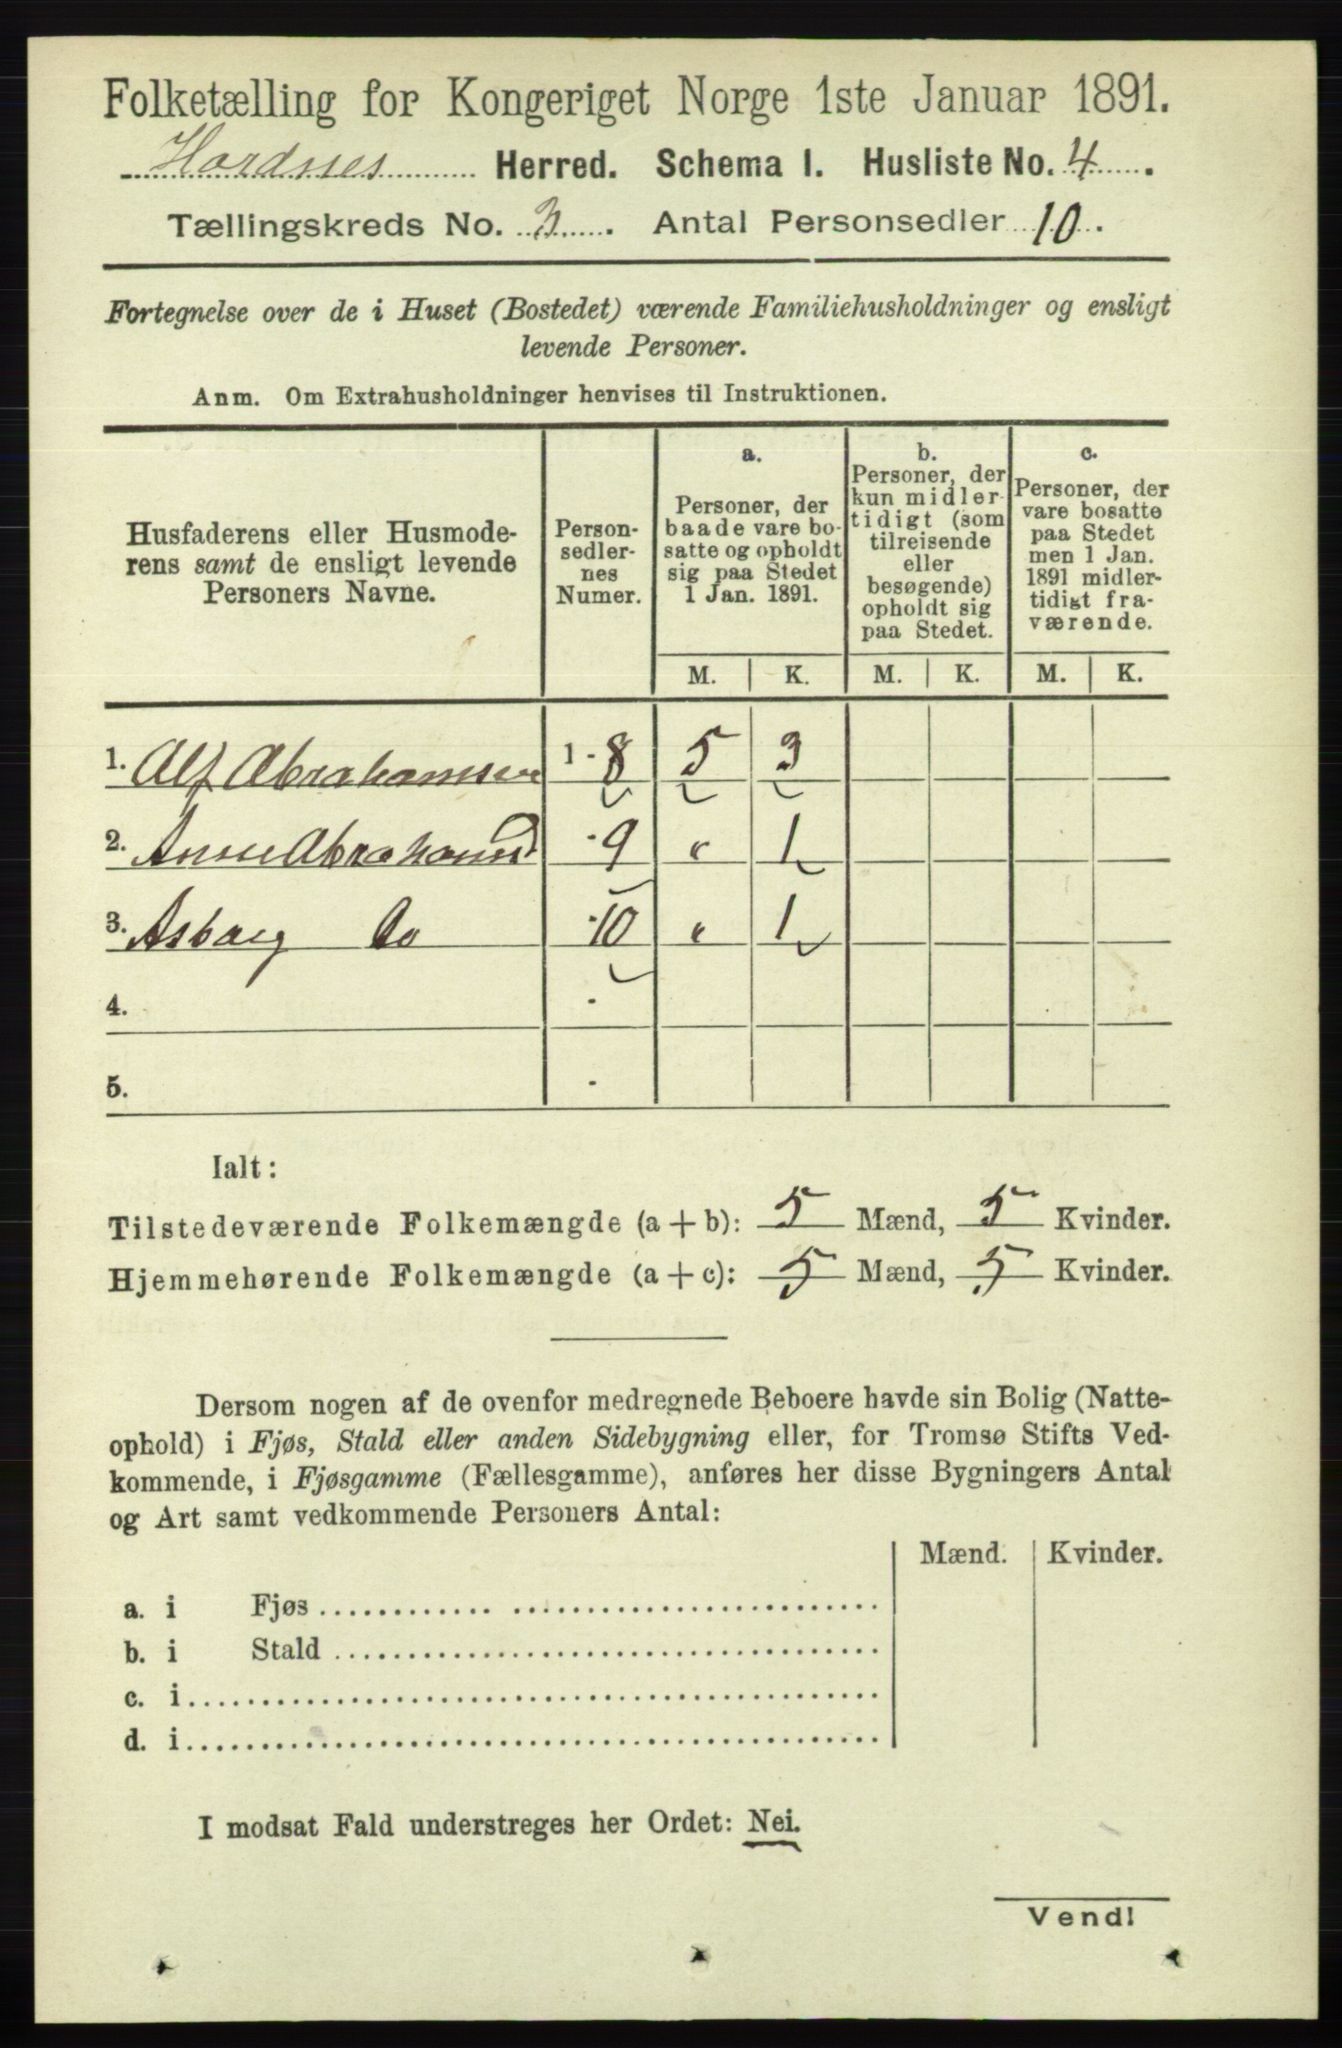 Folketælling for Kongeriget Norge 1ste Januar 1891.
Hordnes Herred. Schema I. Husliste No. 4.
Tællingskreds No. 3. Antal Personsedler 10.
Fortegnelse over de i Huset (Bostedet) værende Familiehusholdninger og ensligt
levende Personer.
Anm. Om Extrahusholdninger henvises til Instruktionen.
Husfaderens eller Husmode-
rens samt de ensligt levende
Personers Navne.
Person-
sedler-
nes
Numer.
a.
Personer, der
baade vare bo-
satte og opholdt
sig paa Stedet
1 Jan. 1891.
b.
Personer, der
kun midler-
tidigt (som
tilreisende
eller
besøgende)
opholdt sig
paa Stedet.
c.
Personer, der
vare bosatte
paa Stedet
men 1 Jan.
1891 midler-
tidigt fra-
værende.
M. K. M. K. M. K.
1. Alf Abrahamsen 1-8 5 3
2. Anne Abrahamsd - 9 " 1
3. Asbørg Do - 10 " 1
4. -
5. -
Ialt:
Tilstedeværende Folkemængde (a + b): 5 Mænd, 5 Kvinder.
Hjemmehørende Folkemængde (a + c): 5 Mænd, 5 Kvinder.
Dersom nogen af de ovenfor medregnede Beboere havde sin Bolig (Natte-
ophold) i Fjøs, Stald eller anden Sidebygning eller, for Tromsø Stifts Ved-
kommende, i Fjøsgamme (Fællesgamme), anføres her disse Bygningers Antal
og Art samt vedkommende Personers Antal:
Mænd. Kvinder.
a. i Fjøs
b. i Stald
c. i
d. i
I modsat Fald understreges her Ordet: Nei.
Vend!